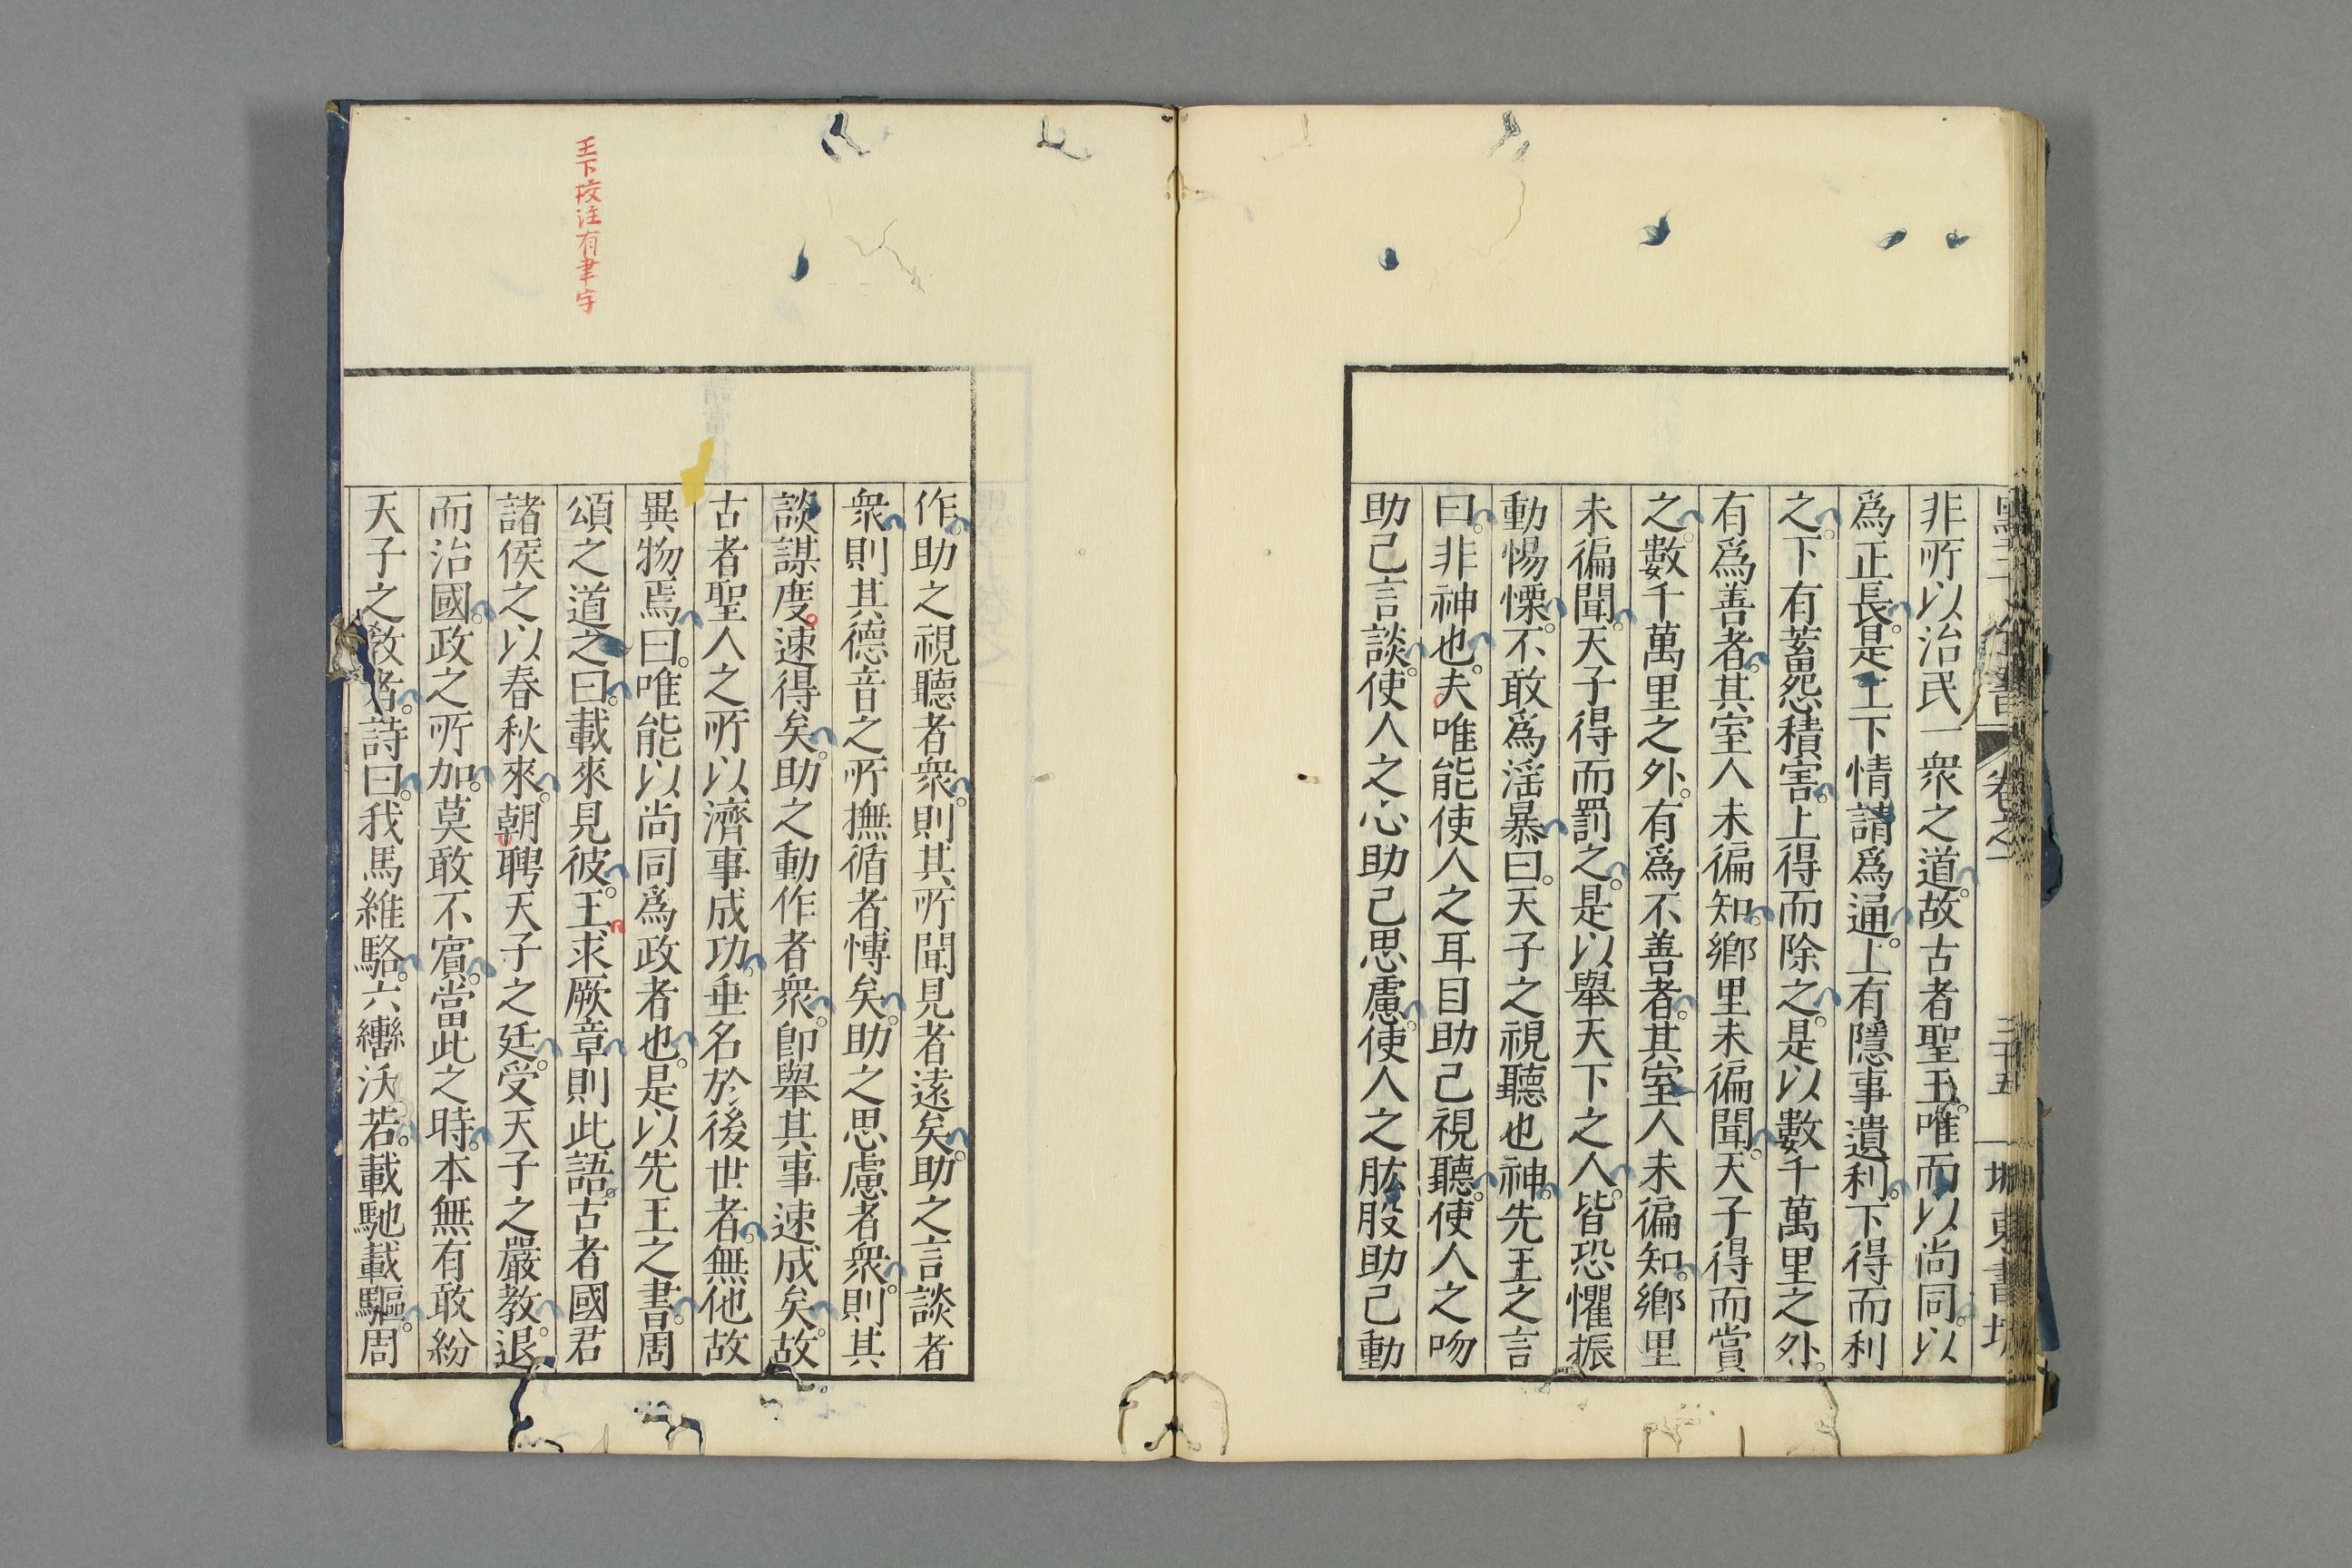 非所以治民一衆之道。故古者聖王。唯而以尚同。以
爲正長。是上下情請爲通。上有隱事遺利。下得而利
之。下有蓄怨積害。上得而除之。是以數千萬里之外。
有爲善者。其室人未徧知。鄉里未徧聞。天子得而賞
之。數千萬里之外。有爲不善者。其室人未徧知。鄉里
未徧聞。天子得而罰之。是以舉天下之人。皆恐懼振
動惕慄。不敢爲淫暴。曰。天子之視聽也神。先王之言
曰。非神也。夫唯能使人之耳目助己視聽。使人之吻
助己言談。使人之心助己思慮。使人之股肱助己動
作。助之視聽者衆。則其所聞見者遠矣。助之言談者
衆。則其德音之所撫循者慱矣。助之思慮者衆。則其
談謀度速得矣。助之動作者衆。卽舉其事速成矣。故
古者聖人之所以濟事成功。垂名於後世者。無他故
異物焉。曰。唯能以尚同爲政者也。是以先王之書。周
頌之道之曰。載來見彼。王求厥章。則此語。古者國君
諸侯之以春秋來。朝聘天子之廷。受天子之嚴教。退
而治國。政之所加。莫敢不賓。當此之時。本無有敢紛
天子之教者。詩曰。我馬維駱。六轡沃若。載馳載驅。周
卷之一
三十五
王下校注有聿字